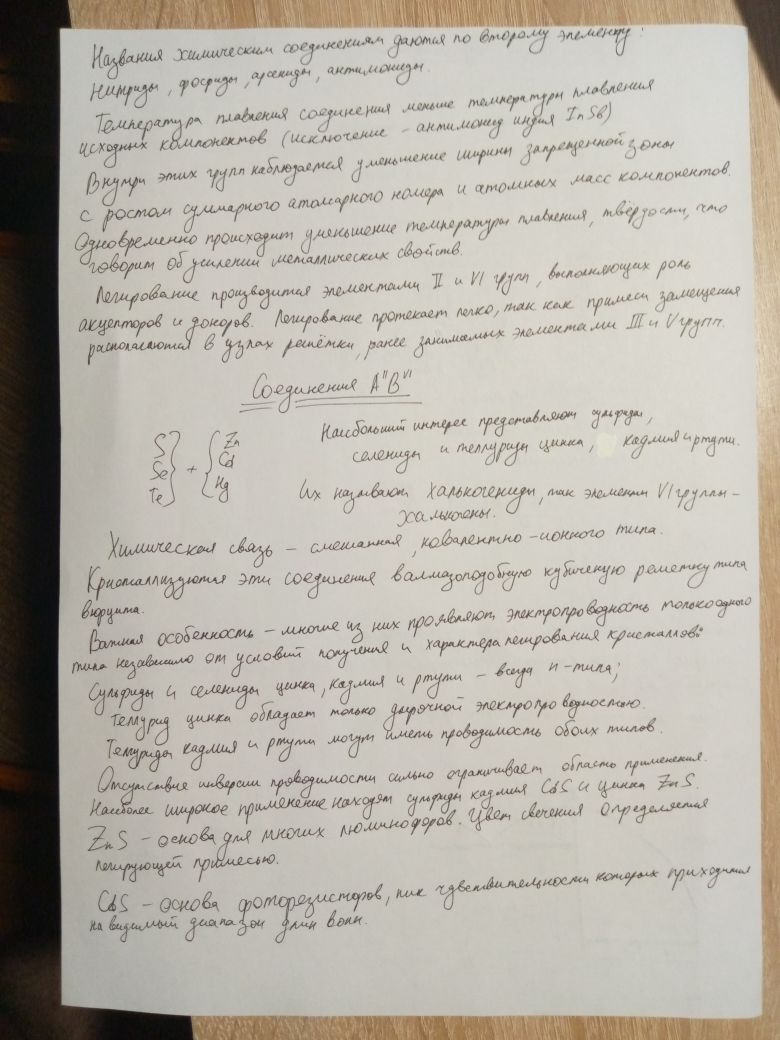 Названия химическим соединениям даются по второму элементу:
Нитриды, фосфиды, арсениды, антимониды.
Температура плавления соединения меньше температуры плавления
исходных компонентов (исключение – антимонид индия InSb)
Внутри этих групп наблюдается уменьшение ширины запрещенной зоны
с ростом суммарного атомарного номера и атомных масс компонентов.
Одновременно происходит уменьшение температуры плавления, твёрдости, что
говорит об усилении металлических свойств.
Легирование производится элементами II и VI групп, выполняющих роль
акцепторов и доноров. Легирование протекает легко, так как примеси замещения
располагаются в узлах решётки, ранее занимаемых элементами III и V групп.
Соединения AᴵᴵBⱽᴵ
S Se Te } + { Zn Cd Hg
Наибольший интерес представляют сульфиды,
селениды и теллуриды цинка, кадмия и ртути.
Их называют халькогениды, так элементы VI группы –
халькогены.
Химическая связь – смешанная, ковалентно-ионного типа.
Кристаллизуются эти соединения в алмазоподобную кубичекую решетку типа
вюрцита.
Важная особенность – многие из них проявляют электропроводность только одного
типа независимо от условий получения и характера легирования кристаллов:
Сульфиды и селениды цинка, кадмия и ртути – всегда n-типа;
Теллурид цинка обладает только дырочной электропроводностью.
Теллуриды кадмия и ртути могут иметь проводимость обоих типов.
Отсутствие инверсии проводимости сильно ограничивает область применения.
Наиболее широкое применение находят сульфиды кадмия CdS и цинка ZnS.
ZnS – основа для многих люминофоров. Цвет свечения определяется
легирующей примесью.
CdS – основа фоторезисторов, пик чувствительности которых приходится
на видимый диапазон длин волн.